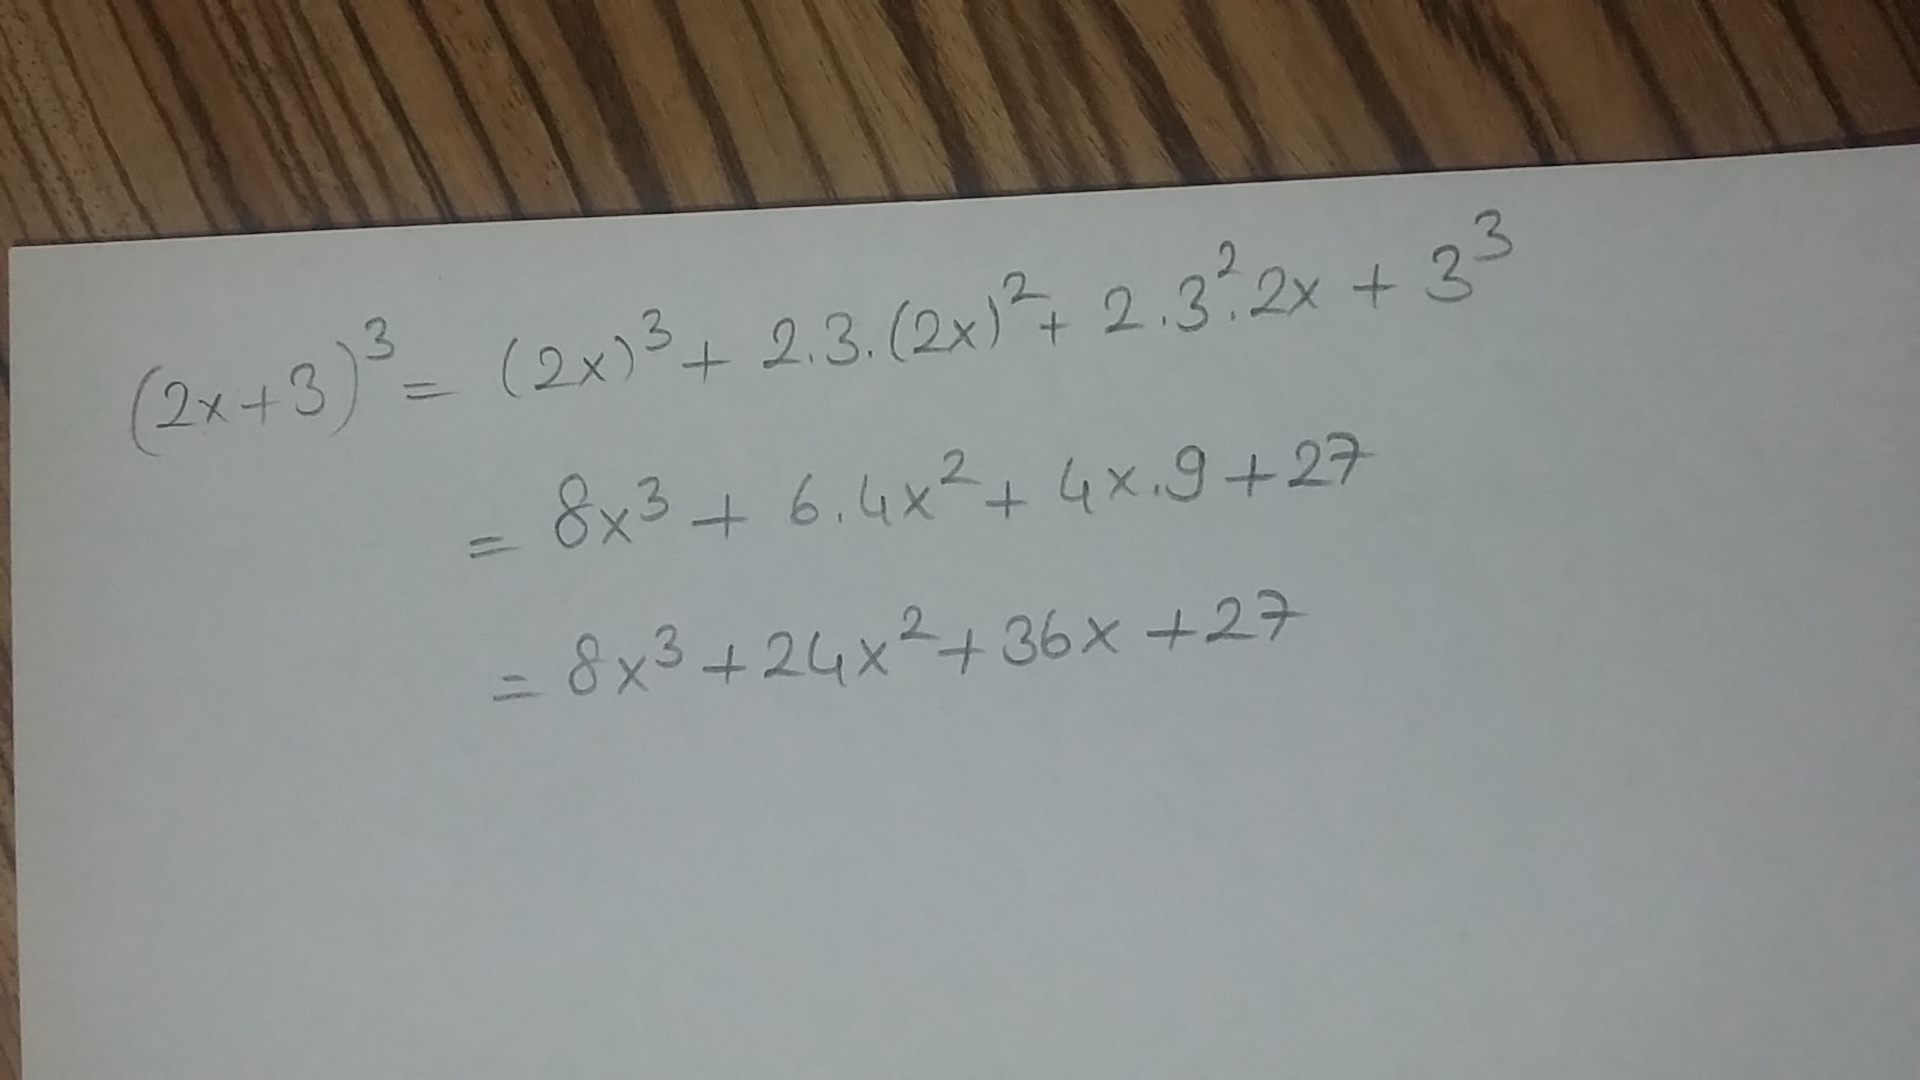 (2x+3)³ = (2x)³ + 2.3.(2x)² + 2.3².2x + 3³
= 8x³ + 6.4x² + 4x.9 + 27
= 8x³ + 24x² + 36x + 27